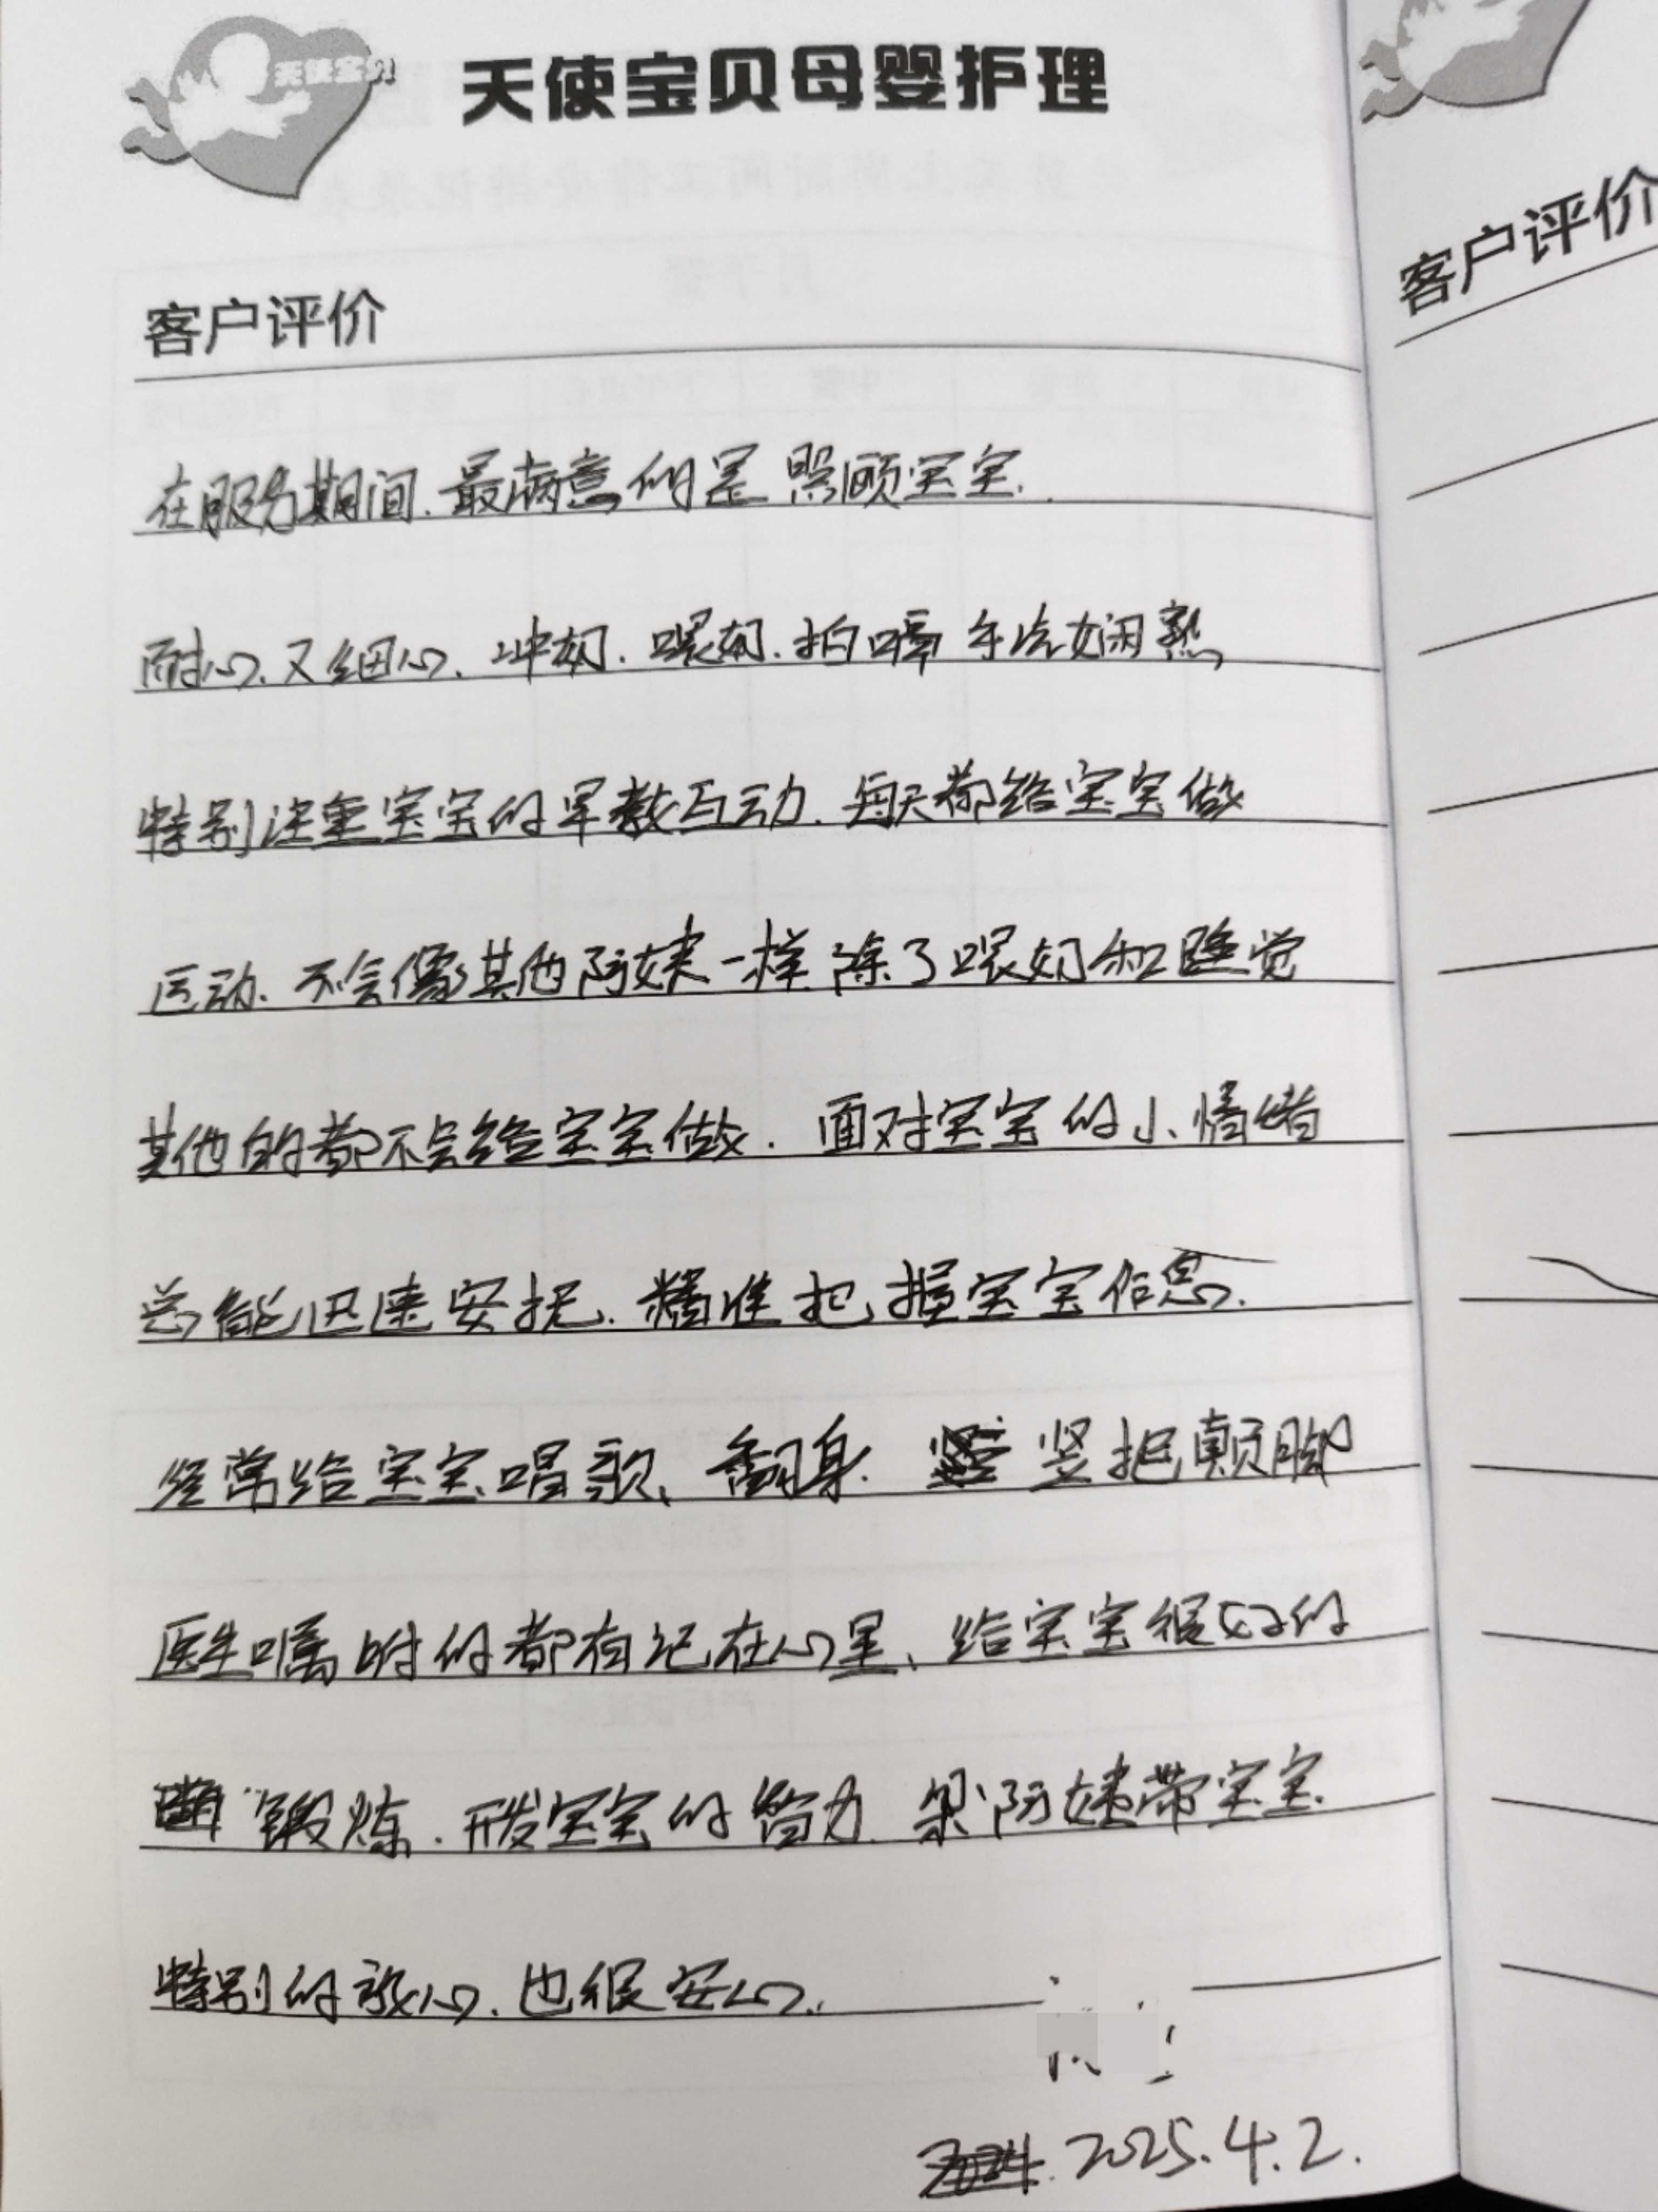 天使宝贝
天使宝贝母婴护理
客户评价
在服务期间.最满意的是照顾宝宝.
耐心、又细心、冲奶.喂奶.拍嗝手法娴熟,
特别注重宝宝的早教互动.每天都给宝宝做
运动.不会像其他阿姨一样除了喂奶和睡觉
其他的都不会给宝宝做.面对宝宝的小情绪
总能迅速安抚.精准把握宝宝信息.
经常给宝宝唱歌、翻身.竖抱颠脚
医生嘱咐的都有记在心里、给宝宝很好的
锻炼.开发宝宝的智力.梁阿姨带宝宝
特别的放心.也很安心.
2025.4.2.
客户评价